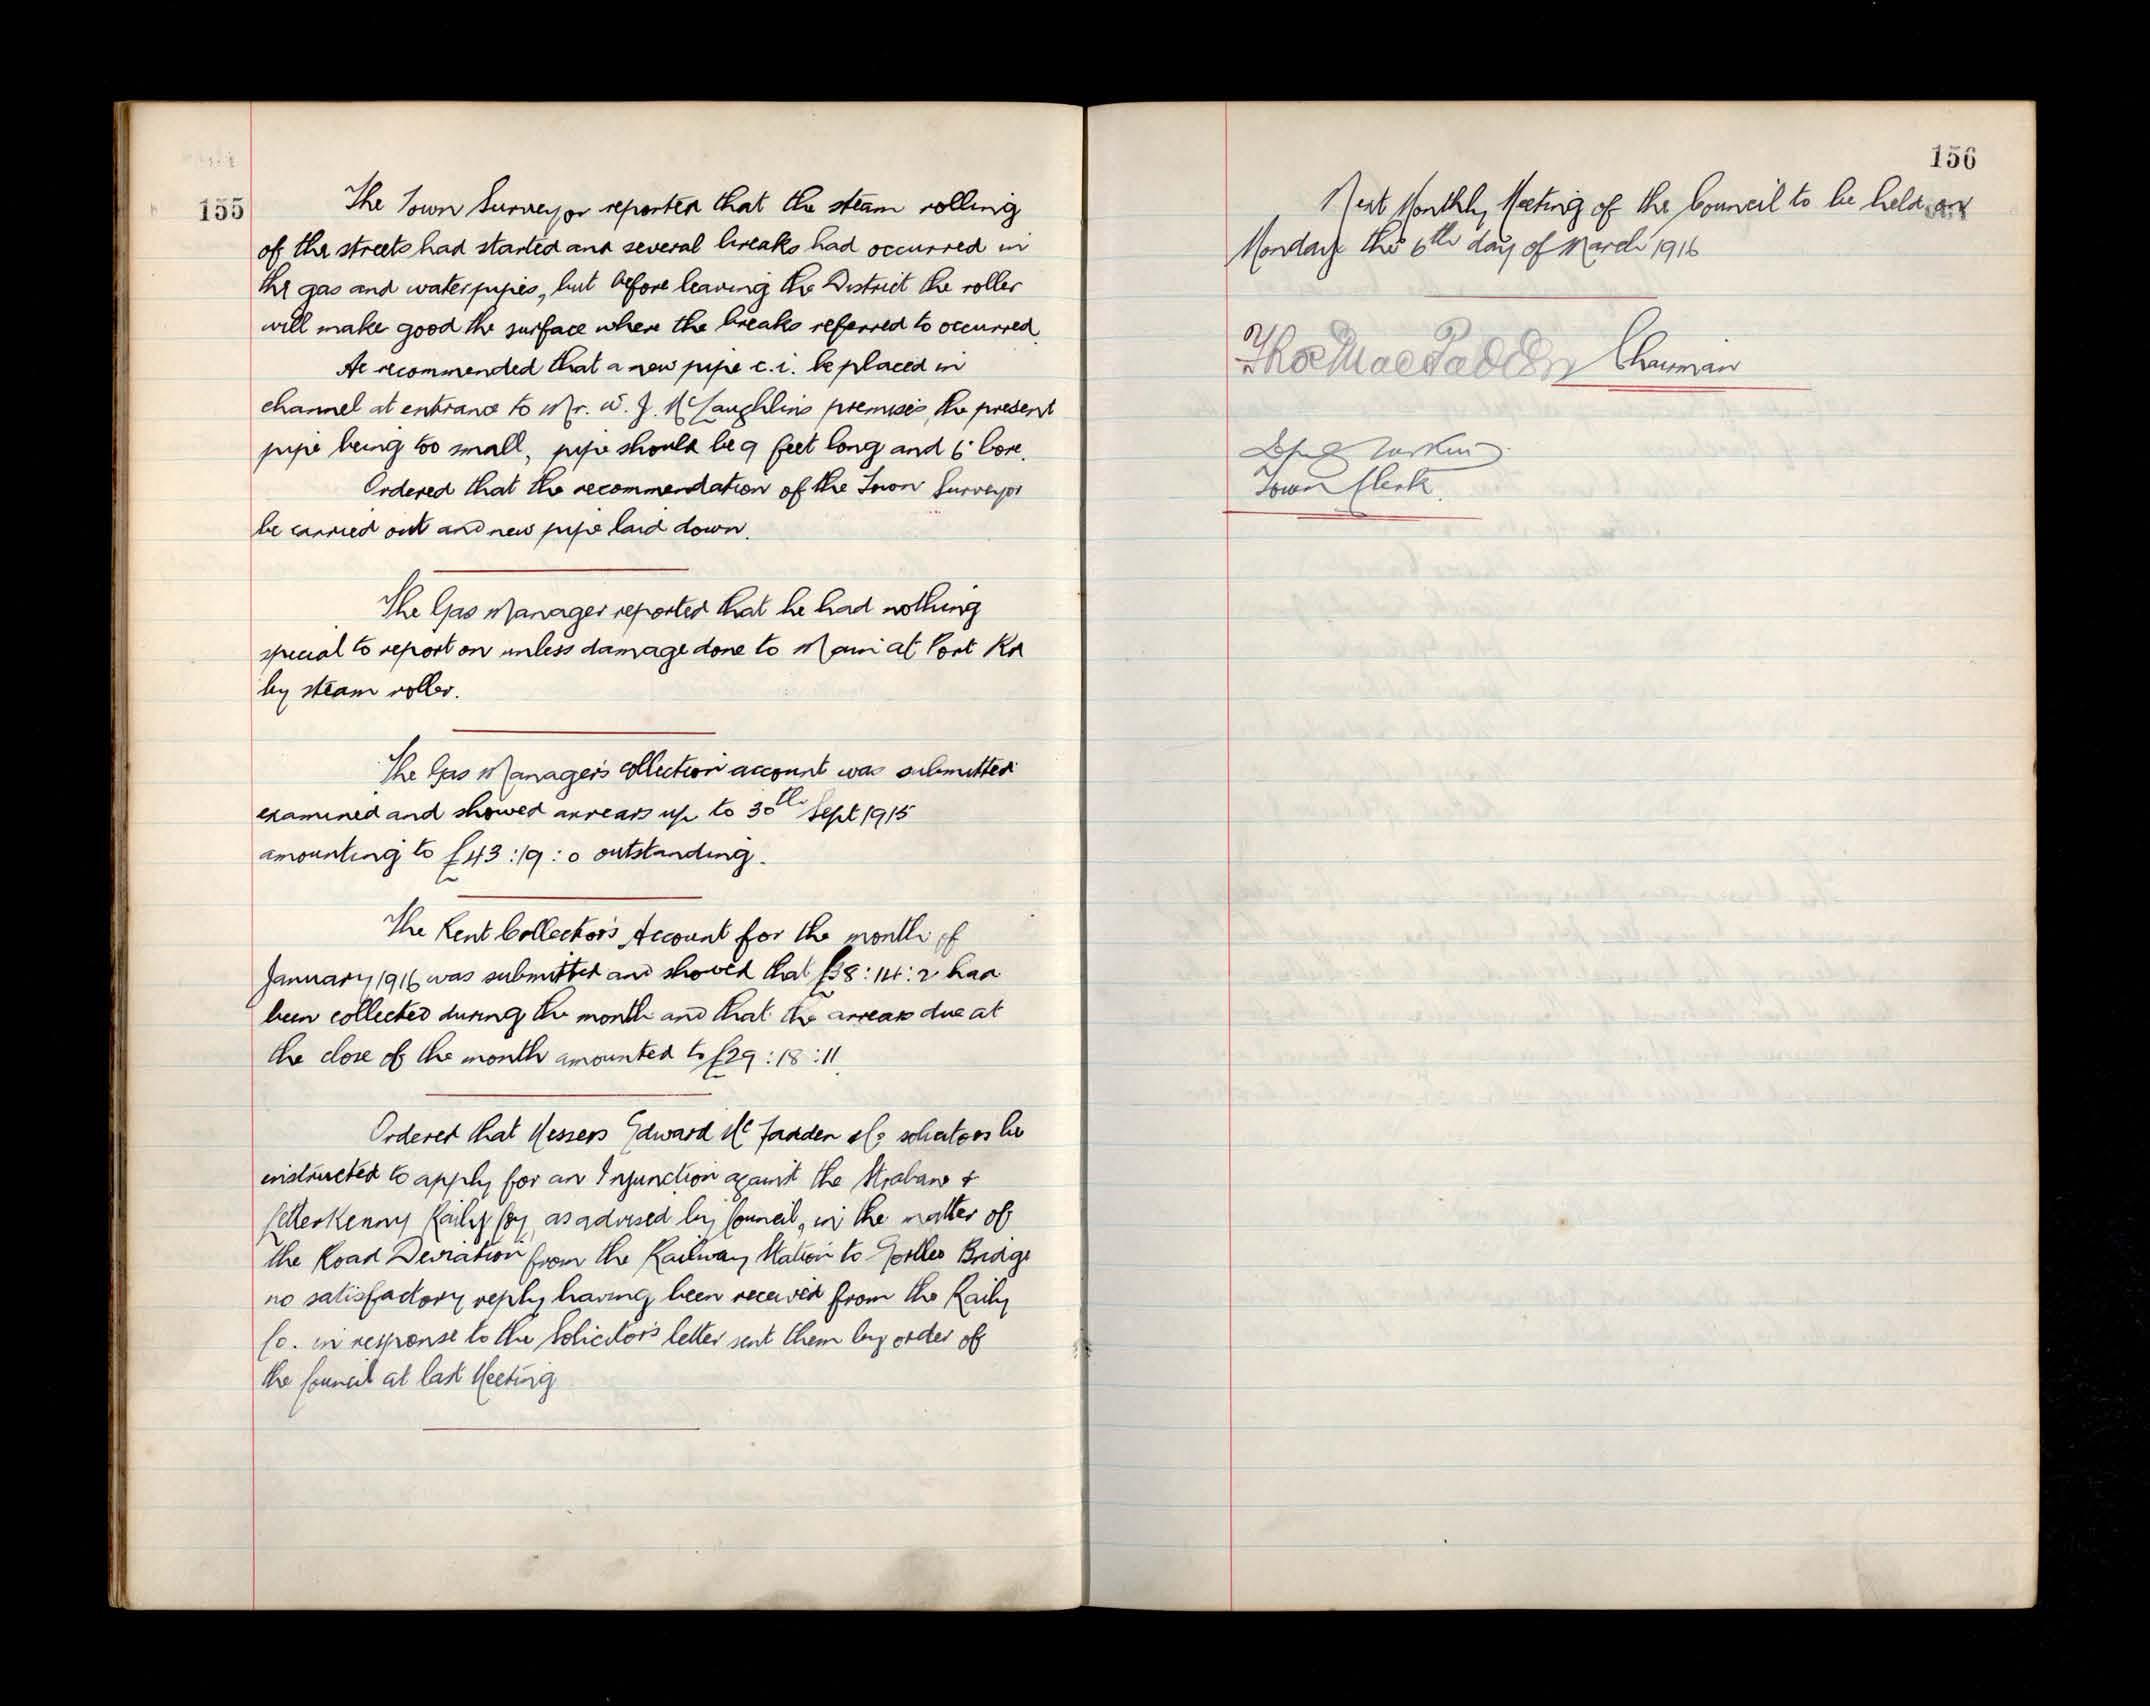 155
The Town Surveyor reported that the steam rolling
of the streets had started and several breaks had occurred in
the gas and water pipes, but before leaving the District the roller
will make good the surface where the breaks referred to occurred.
He recommended that a new pipe c.i. be placed in
channel at entrance to Mr. W. J. McLaughlins premises, the present
pipe being too small, pipe should be 9 feet long and 6" bore.
Ordered that the recommendation of the Town Surveyor
be carried out and new pipe laid down.
The Gas Manager reported that he had nothing
special to report on unless damage done to Main at Port Rd
by steam roller.
The Gas Manager's collection account was submitted
examined and showed arrears up to 30th Sept 1915
amounting to £43:19:0 outstanding.
The Rent Collector's Account for the month of
January 1916 was submitted and showed that £38:14:2 had
been collected during the month and that the arrears due at
the close of the month amounted to £29:18:11.
Ordered that Messrs Edward Mc Fadden & Co solicitors be
instructed to apply for an Injunction against the Strabane &
Letterkenny Raily Coy, as advised by Council, in the matter of
the Road Deviation from the Railway Station to Gortlee Bridge
no satisfactory reply having been received from the Raily
Co. in response to the Solicitor's letter sent them by order of
the Council at last Meeting
156
Next Monthly Meeting of the Council to be held on
Monday the 6th day of March 1916
Thos MacFadden Chairman
Larkin
Town Clerk.